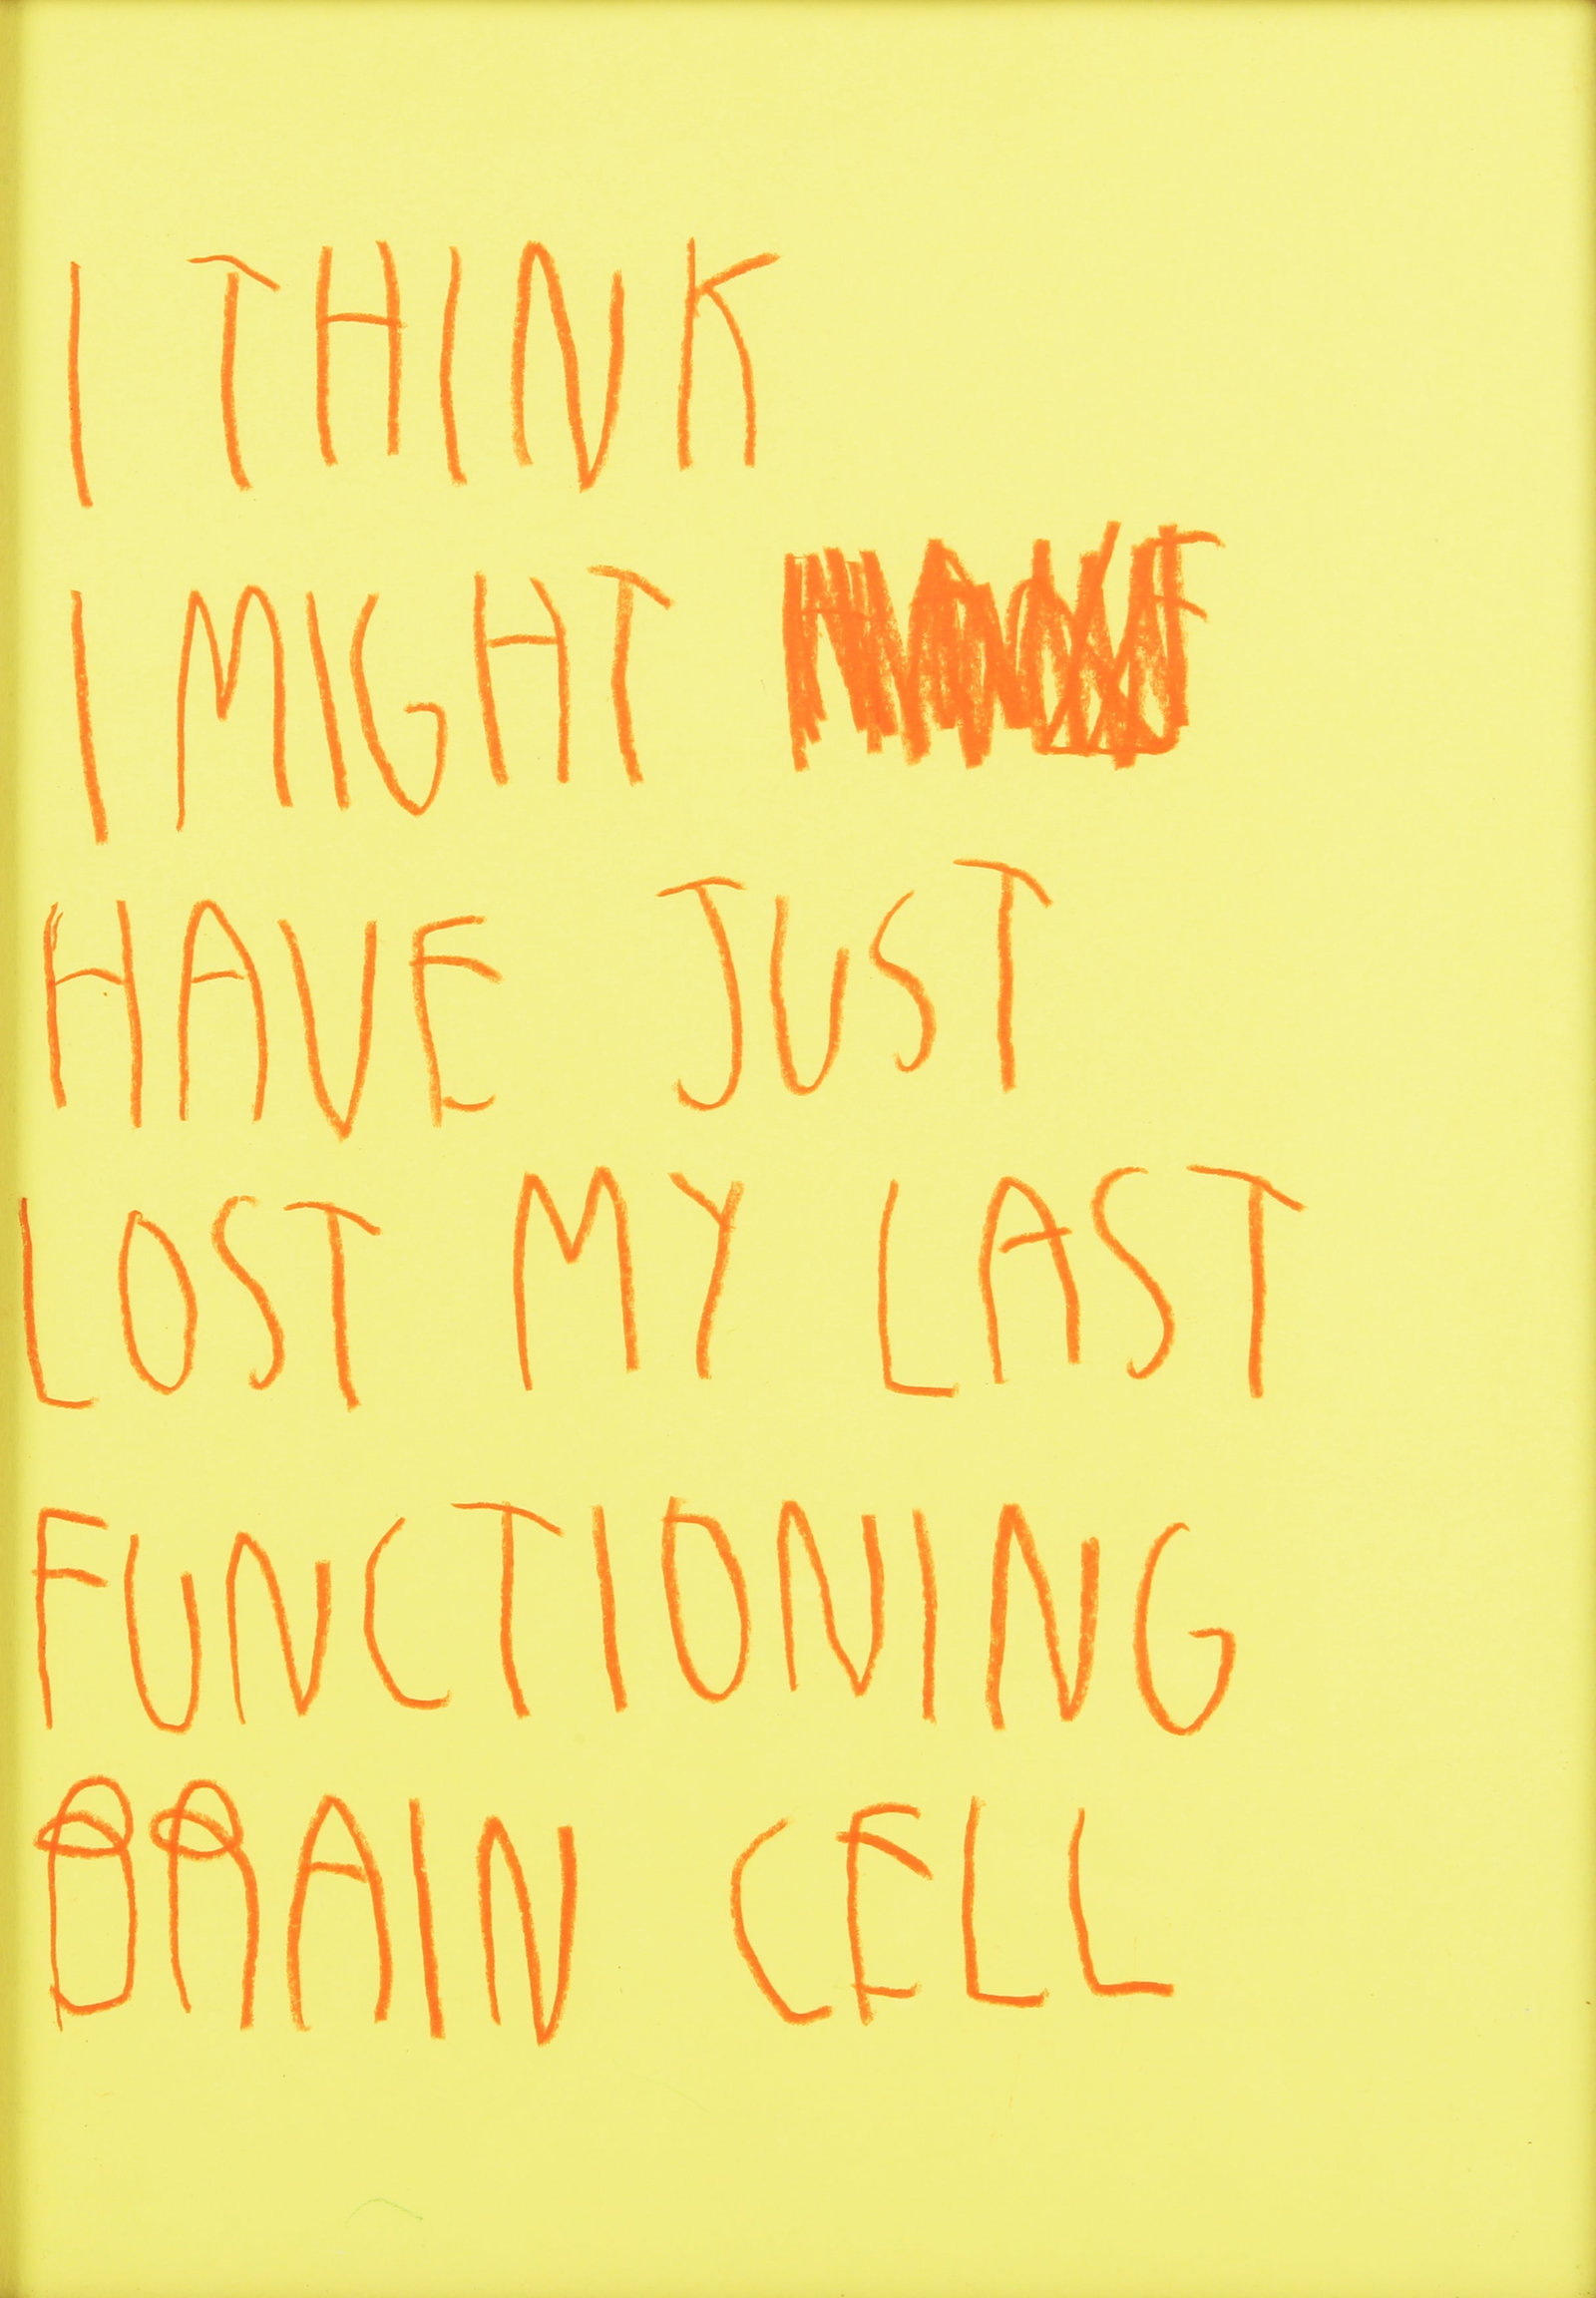 I THINK
I MIGHT
HAVE JUST
LOST MY LAST
FUNCTIONING
BRAIN CELL